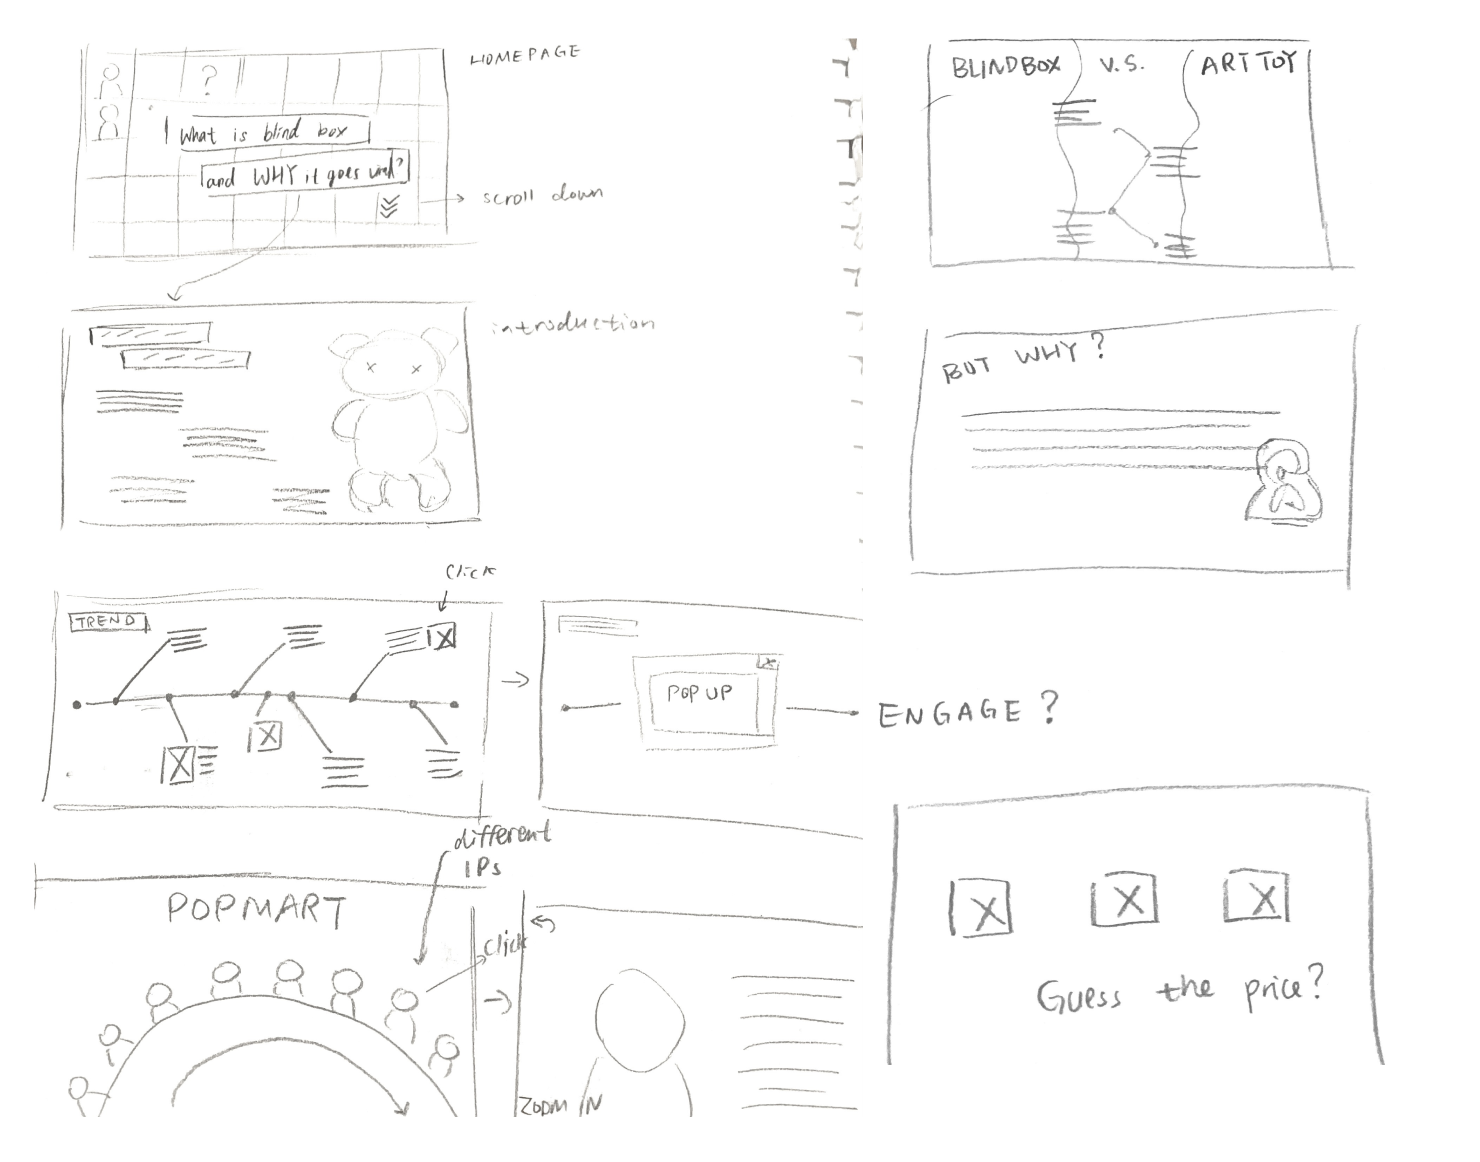 HOMEPAGE
?
What is blind box
and WHY it goes viral?
scroll down
introduction
Click
TREND
POP UP
ENGAGE?
different
IPs
POPMART
Click
ZOOM IN
BLINDBOX V.S. ART TOY
BUT WHY?
Guess the price?